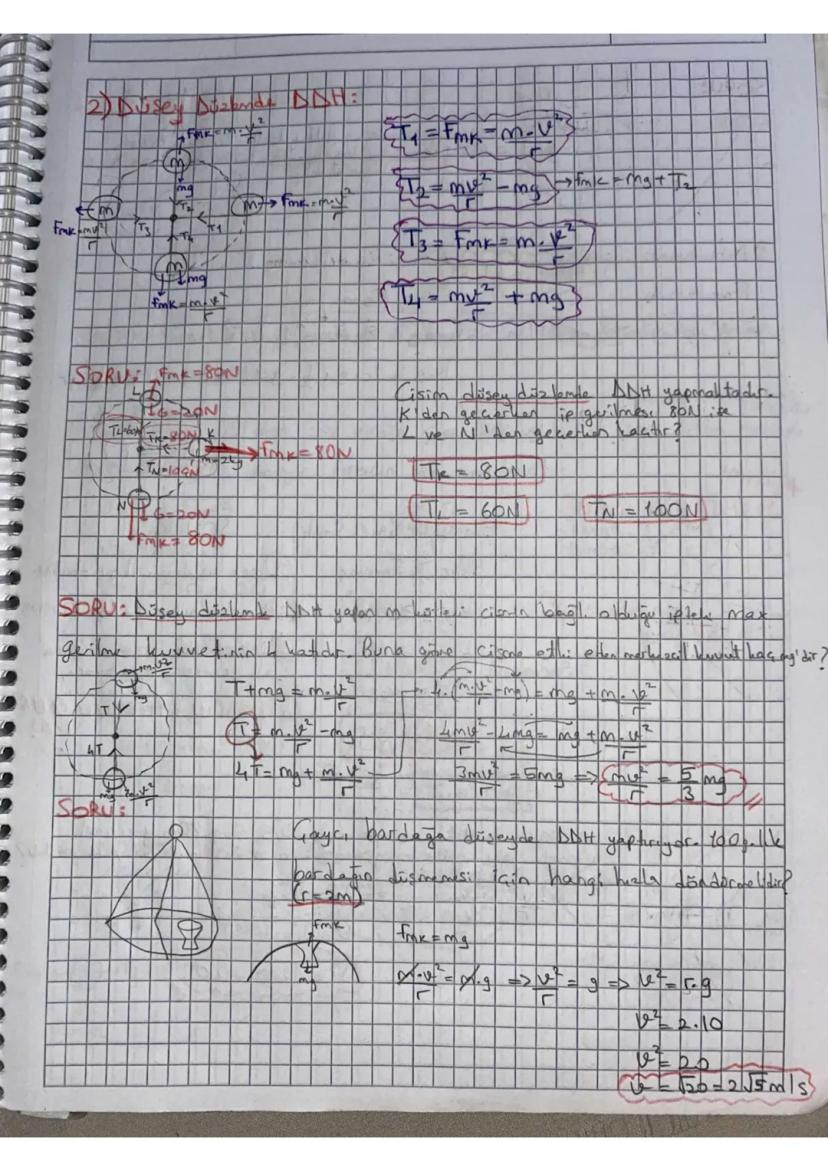 2) Düşey Düzlemde DDH:
Fmk = m·v²/r
m
mg
T2
m
Fmk = m·v²/r
T3
T1
m → Fmk = m·v²/r
T4
m
mg
Fmk = m·v²/r
T1 = Fmk = m·v²/r
T2 = mv²/r - mg → fmk = mg + T2
T3 = Fmk = m·v²/r
T4 = mv²/r + mg
SORU: Fmk = 80N
L
G = 20N
TL = 60N
TK = 80N K
m = 2kg
Fmk = 80N
TN = 100N
N
G = 20N
Fmk = 80N
Cisim düşey düzlemde DDH yapmaktadır.
K'den geçerken ip gerilmesi 80N ise
L ve N'den geçerken kaçtır?
TK = 80N
TL = 60N TN = 100N
SORU: Düşey düzlemde DDH yapan m kütleli cismin bağlı olduğu ipteki max
gerilme kuvvetinin 4 katıdır. Buna göre cisme etki eden merkezcil kuvvet kaç mg'dir?
m·v²/r
mg
T
4T
mg m·v²/r
T + mg = m·v²/r
T = m·v²/r - mg
4T = mg + m·v²/r
4·(m·v²/r - mg) = mg + m·v²/r
4mv²/r - 4mg = mg + m·v²/r
3mv²/r = 5mg => mv²/r = 5/3 mg
SORU:
Çaycı bardağa düşeyde DDH yaptırıyor. 100g.lık
bardağın düşmemesi için hangi hızla döndürmelidir?
(r = 2m)
fmk
mg
fmk = mg
m·v²/r = m·g => v²/r = g => v² = r·g
v² = 2·10
v² = 20
v = √20 = 2√5 m/s